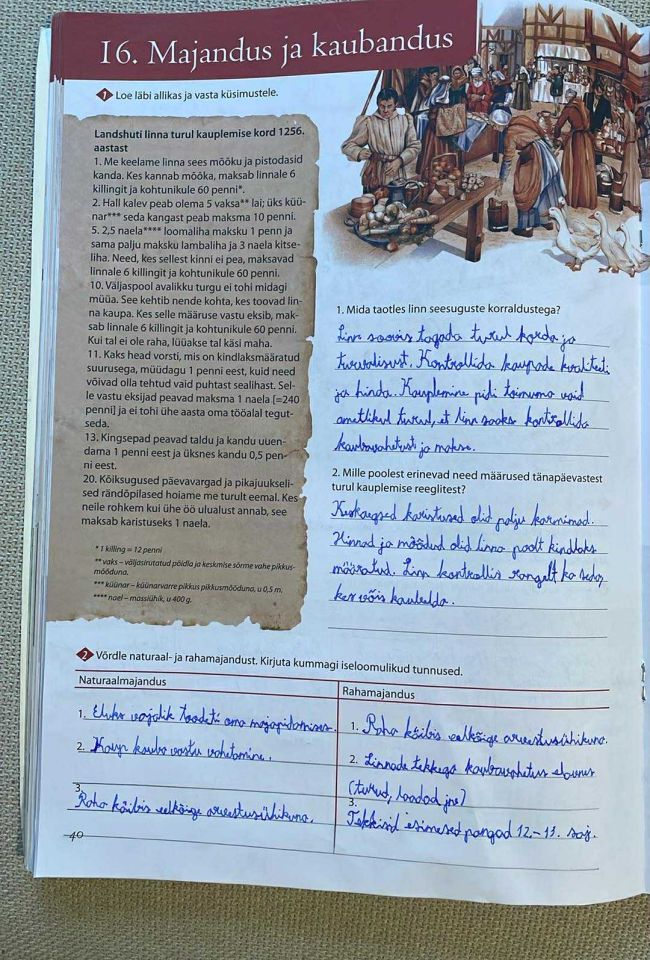 16. Majandus ja kaubandus
1 Loe läbi allikas ja vasta küsimustele.
Landshuti linna turul kauplemise kord 1256.
aastast
1. Me keelame linna sees mõõku ja pistodasid
kanda. Kes kannab mõõka, maksab linnale 6
killingit ja kohtunikule 60 penni*.
2. Hall kalev peab olema 5 vaksa** lai; üks küü-
nar*** seda kangast peab maksma 10 penni.
5. 2,5 naela**** loomaliha maksku 1 penn ja
sama palju maksku lambaliha ja 3 naela kitse-
liha. Need, kes sellest kinni ei pea, maksavad
linnale 6 killingit ja kohtunikule 60 penni.
10. Väljaspool avalikku turgu ei tohi midagi
müüa. See kehtib nende kohta, kes toovad lin-
na kaupa. Kes selle määruse vastu eksib, mak-
sab linnale 6 killingit ja kohtunikule 60 penni.
Kui tal ei ole raha, lüüakse tal käsi maha.
11. Kaks head vorsti, mis on kindlaksmääratud
suurusega, müüdagu 1 penni eest, kuid need
võivad olla tehtud vaid puhtast sealihast. Sel-
le vastu eksijad peavad maksma 1 naela [=240
penni] ja ei tohi ühe aasta oma tööalal tegut-
seda.
13. Kingsepad peavad taldu ja kandu uuen-
dama 1 penni eest ja üksnes kandu 0,5 pen-
ni eest.
20. Kõiksugused päevavargad ja pikajuukseli-
sed rändõpilased hoiame me turult eemal. Kes
neile rohkem kui ühe öö ulualust annab, see
maksab karistuseks 1 naela.
* 1 killing = 12 penni
** vaks – väljasirutatud pöidla ja keskmise sõrme vahe pikkus-
mõõduna.
*** küünar – küünarvarre pikkus pikkusmõõduna, u 0,5 m.
**** nael – massiühik, u 400 g.
1. Mida taotles linn seesuguste korraldustega?
Linn soovis tagada turul korda ja
turvalisust. Kontrollida kaupade kvaliteeti
ja hinda. Kauplemine pidi toimuma vaid
ametlikul turul, et linn saaks kontrollida
kaubavahetust ja makse.
2. Mille poolest erinevad need määrused tänapäevastest
turul kauplemise reeglitest?
Keskaegsed karistused olid palju karmimad.
Hinnad ja mõõdud olid linna poolt kindlaks
määratud. Linn kontrollis rangelt ka seda,
kes võis kaubelda.
2 Võrdle naturaal- ja rahamajandust. Kirjuta kummagi iseloomulikud tunnused.
Naturaalmajandus
1. Eluks vajalik toodeti oma majapidamises.
2. Kaup kauba vastu vahetamine.
3.
Raha käibis eelkõige arvestusühikuna.
Rahamajandus
1. Raha käibis eelkõige arvestusühikuna.
2. Linnade tekkega kaubavahetus elavnes
(turud, laadad jne)
3.
Tekkisid esimesed pangad 12.–13. saj.
40